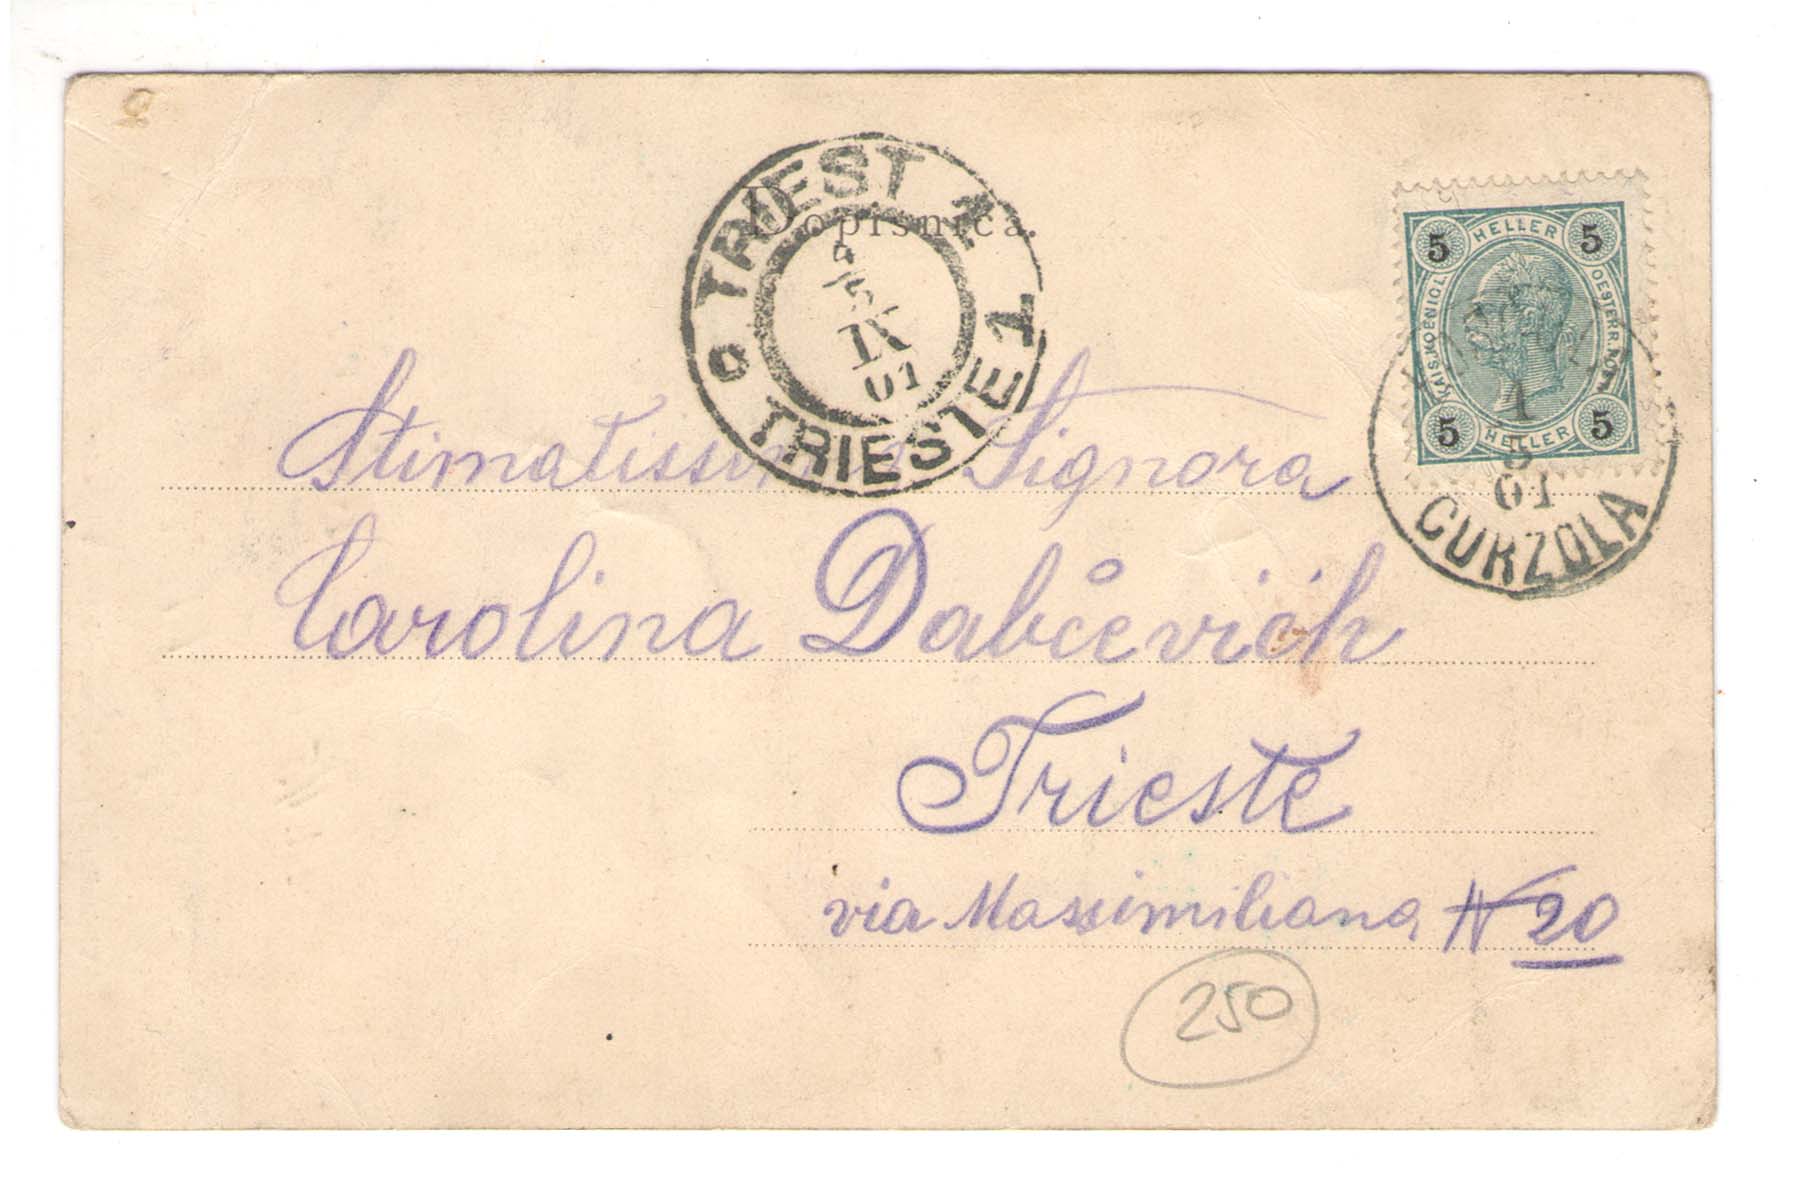 Dopisnica.
TRIEST 1
TRIESTE 1
4/5
IX
01
5 HELLER 5
KAIS. KOENIGL. OESTERR. POST
5 HELLER 5
1
5
01
CURZOLA
Stimatissima Signora
Carolina Dabčevich
Trieste
via Massimiliana N 20
250